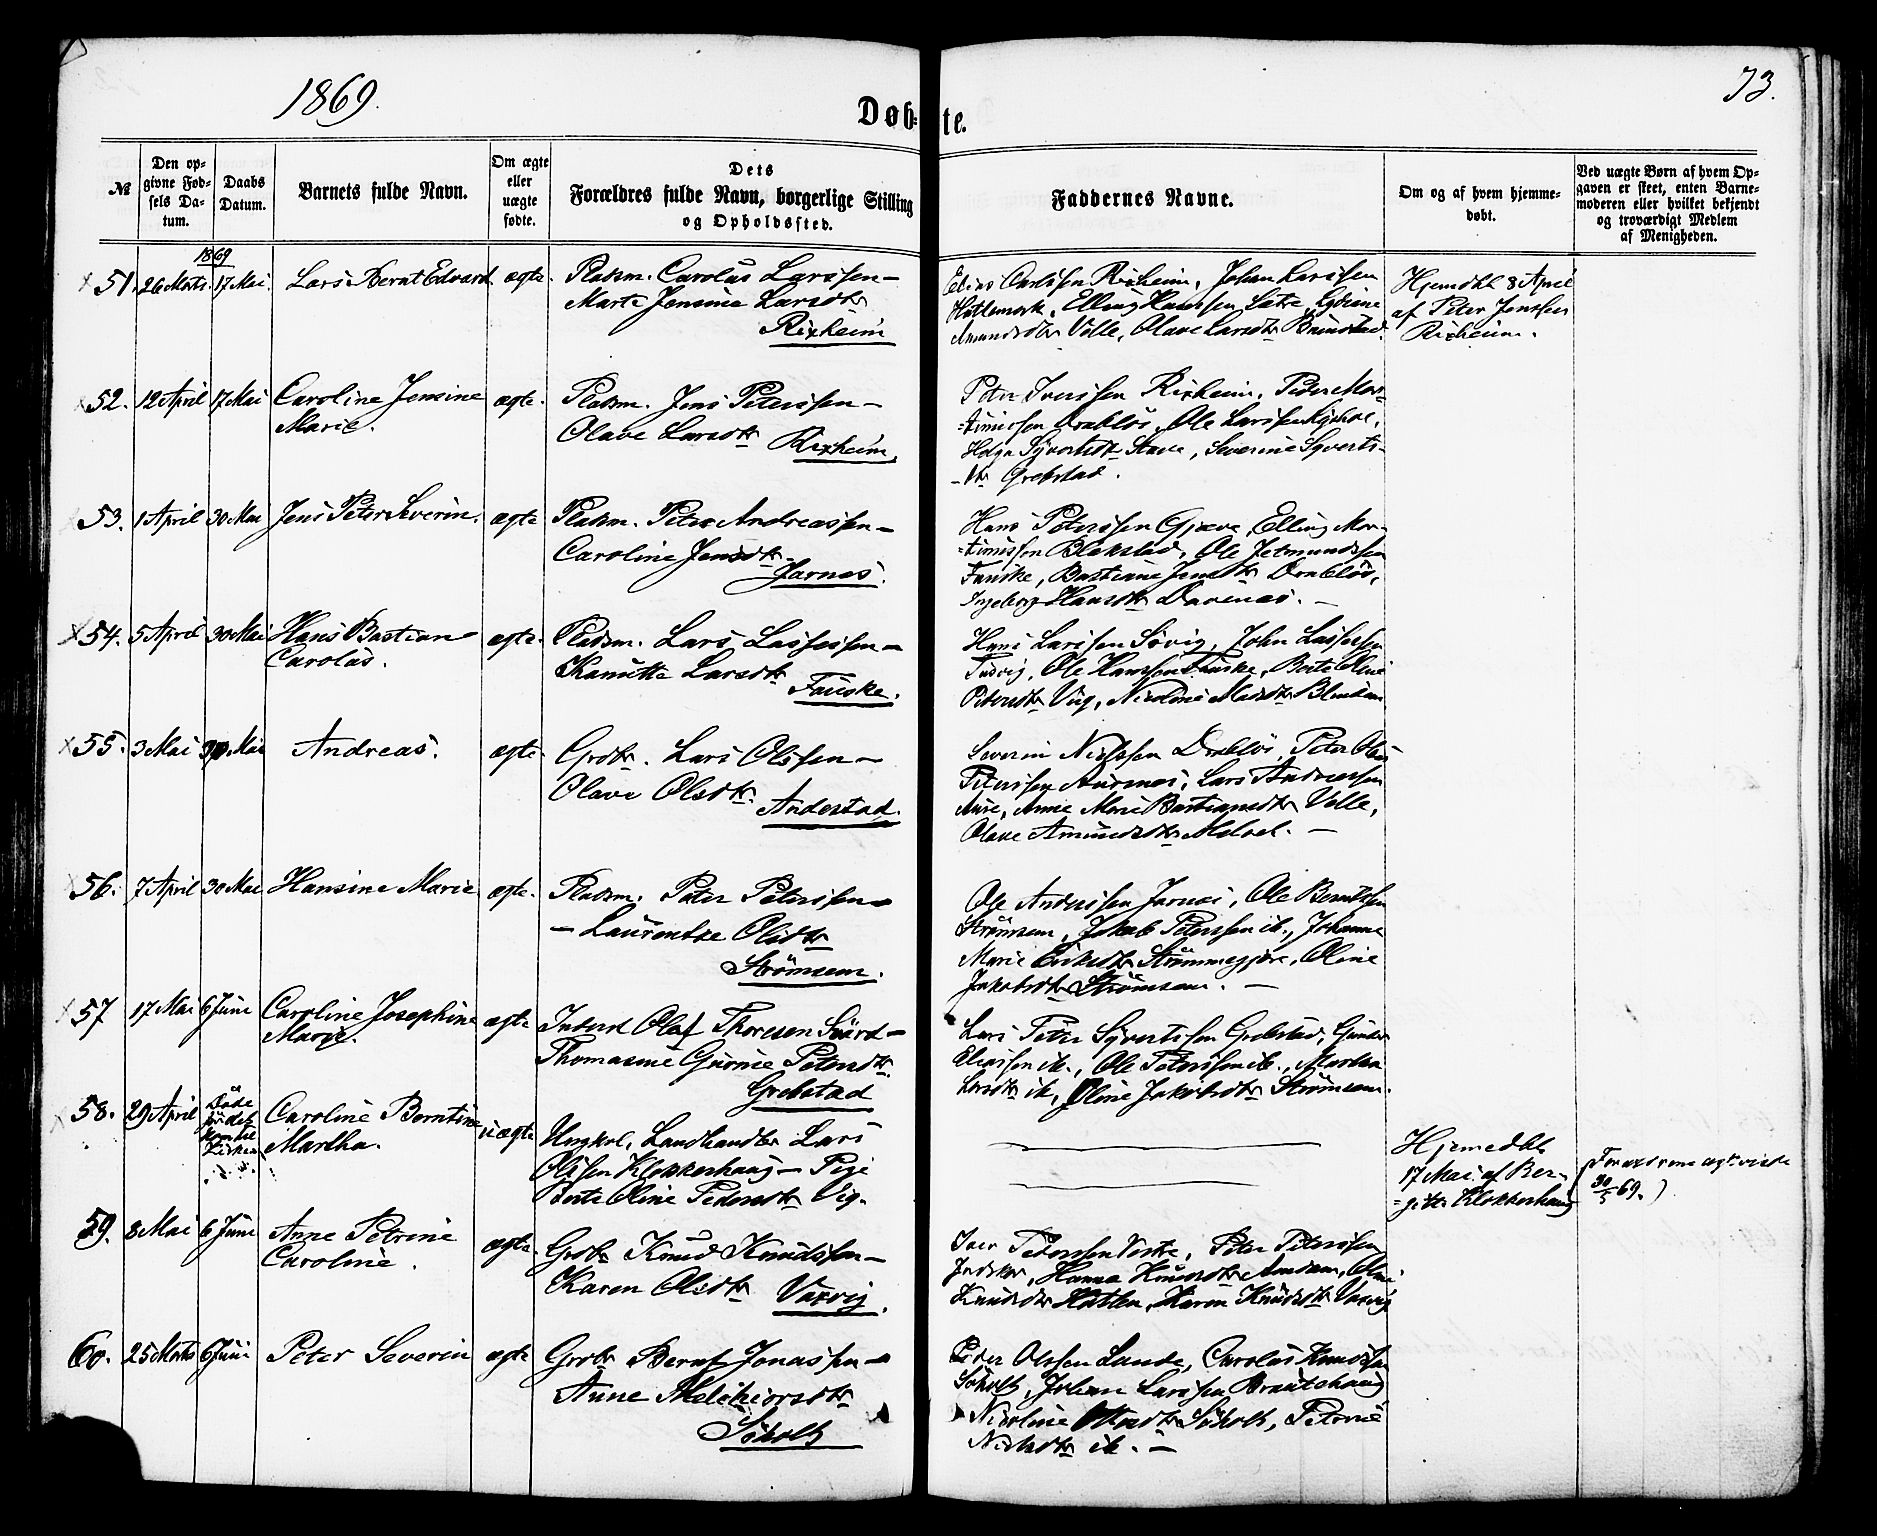 1869.
73.
Døb-
te.
№
Den op-
givne Fød-
sels Da-
tum.
Daabs
Datum.
Barnets fulde Navn.
Om ægte
eller
uægte
fødte.
Dets
Forældres fulde Navn, borgerlige Stilling
og Opholdssted.
Faddernes Navne.
Om og af hvem hjemme-
døbt.
Ved uægte Børn af hvem Op-
gaven er skeet, enten Barne-
moderen eller hvilket bekjendt
og troværdigt Medlem
af Menigheden.
1869
51. 26 Marts. 17 Mai. Lars Bernt Edvard ægte. Pladsm. Carolus Larssen –
Marte Jensine Larsdtr
Rixheim
Elias Carlssen Rixheim, Johan Larssen
Hattemark, Elling Hanssen Sætre,
Amundsdtr Velle, Olave Larsdtr
Hjemdbt 8 April
af Peter Jenssen
Rixheim.
52. 12 April 17 Mai Caroline Jensine ægte. Pladsm. Jens Peterssen –
Marie. Olave Larsdtr Rixheim.
Peter Iverssen Rixheim, Peder Mar-
=tinussen Drabløs, Ole Larssen
Helga Syvertsdtr Stave, Severine Syverts-
-dtr Grebstad.
53. 1 April 30 Mai Jens Peter Severin. ægte Pladsm. Peter Andreassen –
Caroline Jensdtr
Jarnes.
Hans Peterssen Gjæve, Elling Mar-
=tinussen Blakstad, Ole Jetmundssen
Fauske, Bastiane Jensdtr Drabløs,
Ingeborg Hansdtr –
54. 5 April 30 Mai Hans Bastian ægte. Pladsm. Lars Lassessen –
Carolus. Kanutte Larsdtr Fauske.
Hans Larssen Søvig, John Lassessen
Tusvig, Ole Hanssen Fauske, Berte Oline
Petersdtr Vig, Nicoline Madsdtr
55. 3 Mai 30 Mai Andreas. ægte. Grdbr. Lars Olssen –
Olave Olsdtr. Andestad.
Severin Nielssen Drabløs, Peter
Peterssen Aurenes, Lars Andreassen
Aure, Anne Marie Bastiansdtr Velle,
Olave Amundsdtr –
56. 7 April 30 Mai Hansine Marie ægte. Pladsm. Peter Peterssen –
– Laurentze Olsdtr
Strømsem.
Ole Anderssen Jarnes, Ole Berntssen
Strømsem, Jakob Peterssen ib., Johanna
Marie Eriksdtr Strømmegjære, Oline
Jakobsdtr Strømsem. –
57 17 Mai 6 Juni Caroline Josephine ægte Inderst Olaf Thoresen Sværd –
Marie. Thomasine Gurine Petersdtr.
Grebstad
Lars Peter Syvertssen Grebstad,
Eliassen ib., Ole Peterssen ib.,
Larsdtr ib, Oline Jakobsdtr Strømsem.
58. 29 April Døde
før det
kom til
Kirken
Caroline Berntine uægte Ungkrl, Landhandler Lars
Martha. Olssen Klokkerhaug – Pige
Berte Oline Pedersdtr Vig.
Hjemedbt.
17 Mai af Ber-
=gitte Klokkerhaug
(Forældrene ægteviede
30/5 69.)
59. 8 Mai 6 Juni Anne Petrine ægte. Grdbr Knud Knudssen –
Caroline. Karen Olsdtr Vaxvig.
Iver Peterssen Vestre, Peter Peterssen
Hanna Knudsdtr Amdam, Oline
Knudsdtr Hatlen, Karen Knudsdtr Vaxvig
60. 25 Marts 6 Juni Peter Severin ægte Grdbr Bernt Jonassen –
Anne Melchiorsdtr
Søholt
Peder Olssen Lande, Carolus Knudssen
Søholt, Johan Larssen Brautehaug
Nicoline Søholt, Petrine
Nielsdtr ib. –